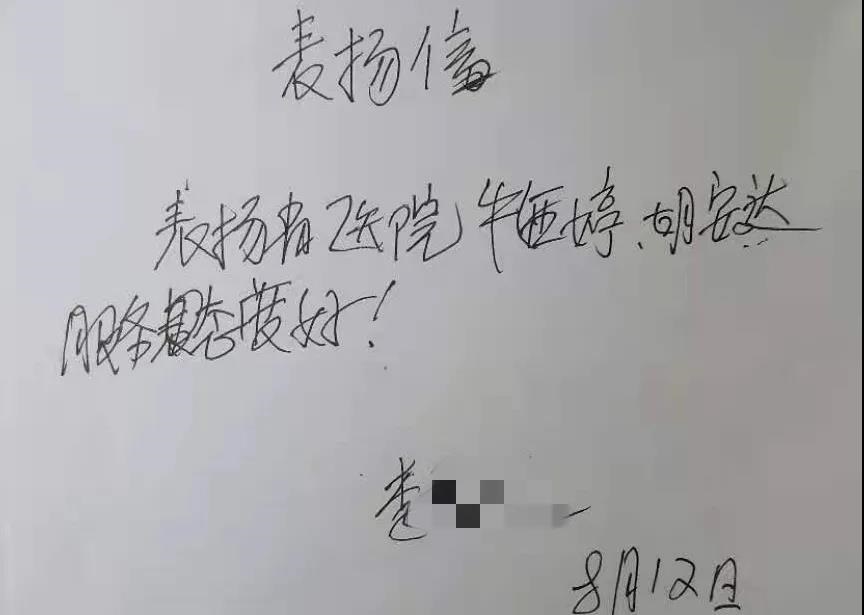 表扬信
表扬省医院牛西婷、胡安达
服务态度好！
李
8月12日